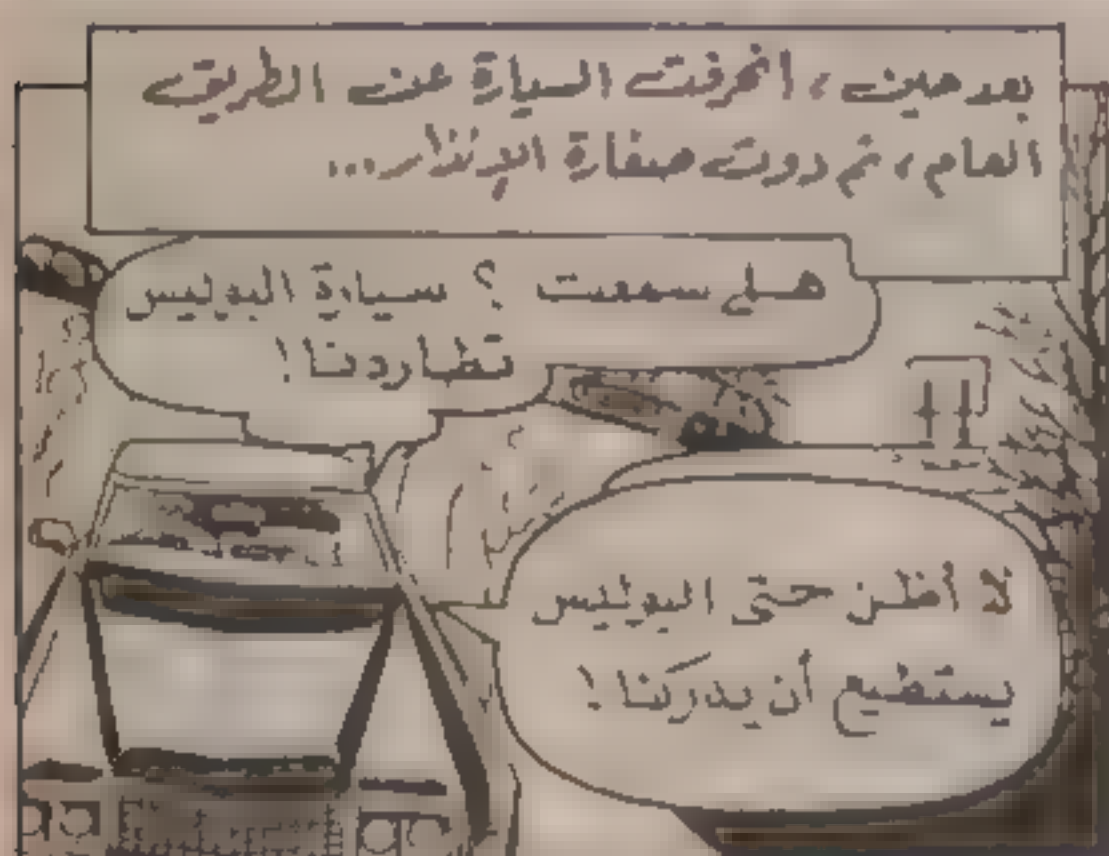 بعد حين، انحرفت السيارة عن الطريق
العام، ثم دوت صفارة الإنذار...
هل سمعت؟ سيارة البوليس
تطاردنا!
لا أظن حتى البوليس
يستطيع أن يدركنا!